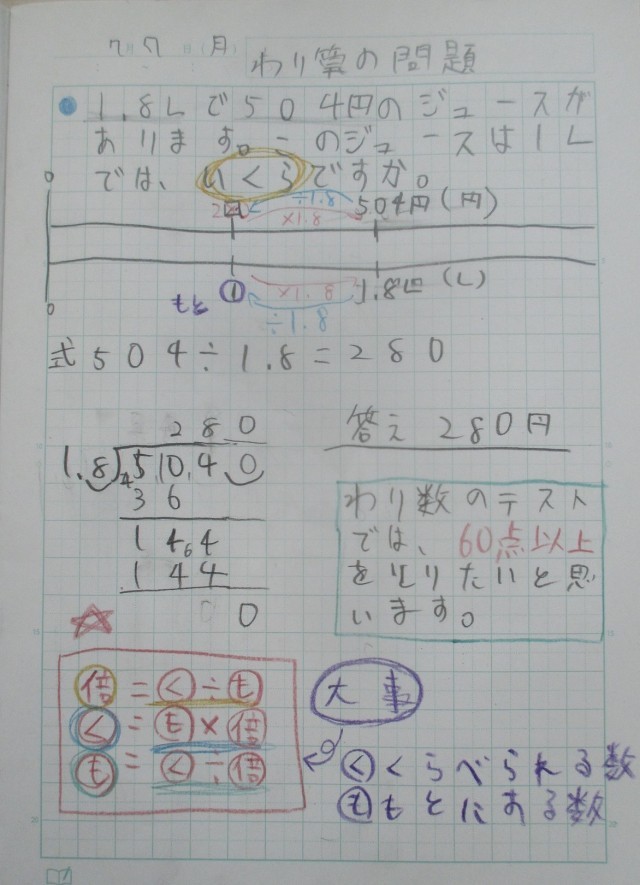 7月7日(月)
わり算の問題
1.8Lで504円のジュースが
あります。このジュースは1L
では、いくらですか。
0 ÷1.8 504円(円)
×1.8
×1.8 1.8L (L)
0 もと ① ÷1.8
式 504÷1.8=280
280
1.8)5040
36
144
144
0
答え 280円
わり数のテスト
では、60点以上
をとりたいと思
います。
倍=く÷も
く=も×倍
も=く÷倍
大事
く くらべられる数
も もとにある数